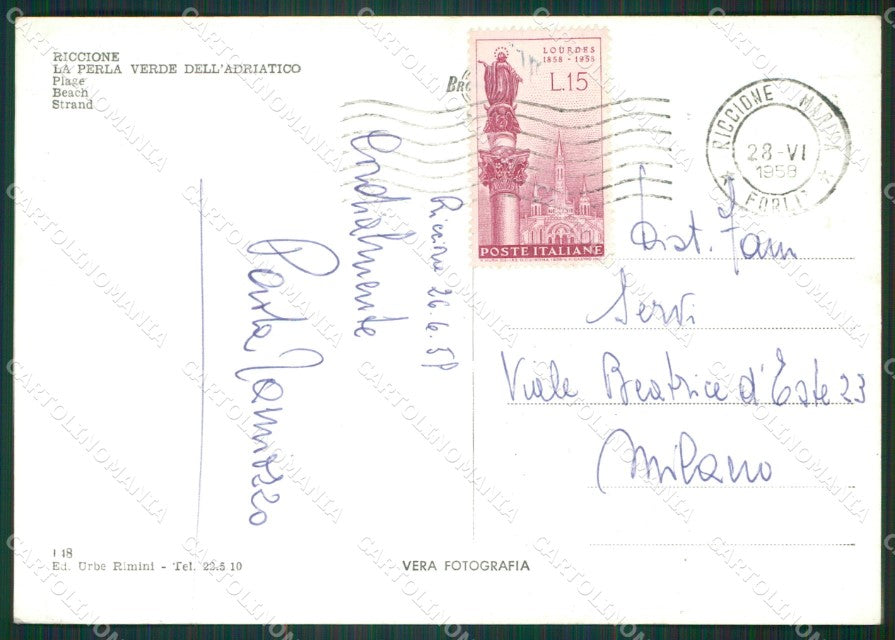 RICCIONE
LA PERLA VERDE DELL'ADRIATICO
Plage
Beach
Strand
LOURDES
1858 - 1958
L.15
POSTE ITALIANE
RICCIONE MARINA
28-VI
1958
FORLI
Riccione 26.6.58
Cordialmente
Paola
Dist. Fam
Servi
Viale Beatrice d'Este 23
Milano
148
Ed. Urbe Rimini - Tel. 22.5 10
VERA FOTOGRAFIA
CARTOLINOMANIA